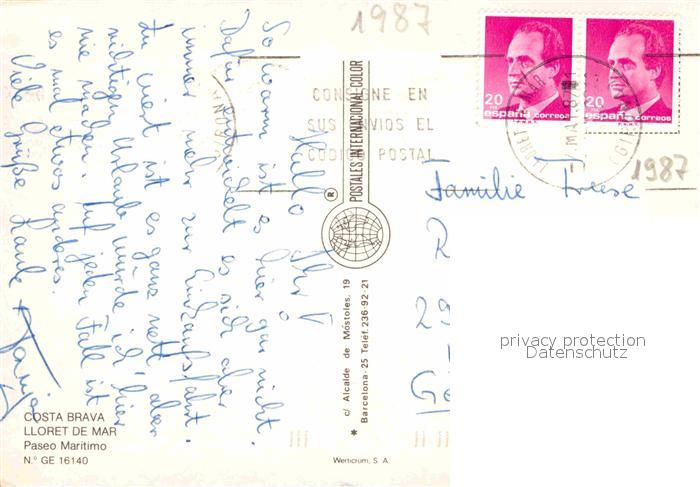 1987
20
20
españa correos
españa correos
CONSIGNE EN
SUS ENVIOS EL
CODIGO POSTAL
LLORET DE MAR
MAR 87
1987
Familie Freese
R
29
privacy protection
Datenschutz
Hallo Ihr!
So warm ist es hier gar nicht.
Dafür entwickelt es sich aber
immer mehr zur Einkaufsfahrt.
Zu viert ist es ganz nett aber
richtigen Urlaub würde ich hier
nie machen. Auf jeden Fall ist
es mal etwas anderes.
Viele Grüße Maule + Tanja
POSTALES INTERNACIONAL COLOR
®
* c/ Alcalde de Móstoles, 19
Barcelona-25 Teléf. 236-92-21
COSTA BRAVA
LLORET DE MAR
Paseo Marítimo
N.º GE 16140
Werticrum, S. A.